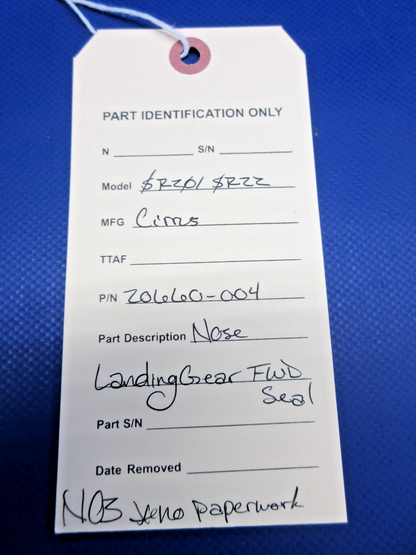 PART IDENTIFICATION ONLY
N S/N
Model SR20/ SR22
MFG Cirrus
TTAF
P/N 20660-004
Part Description Nose
Landing Gear FWD
Seal
Part S/N
Date Removed
NOS no paperwork